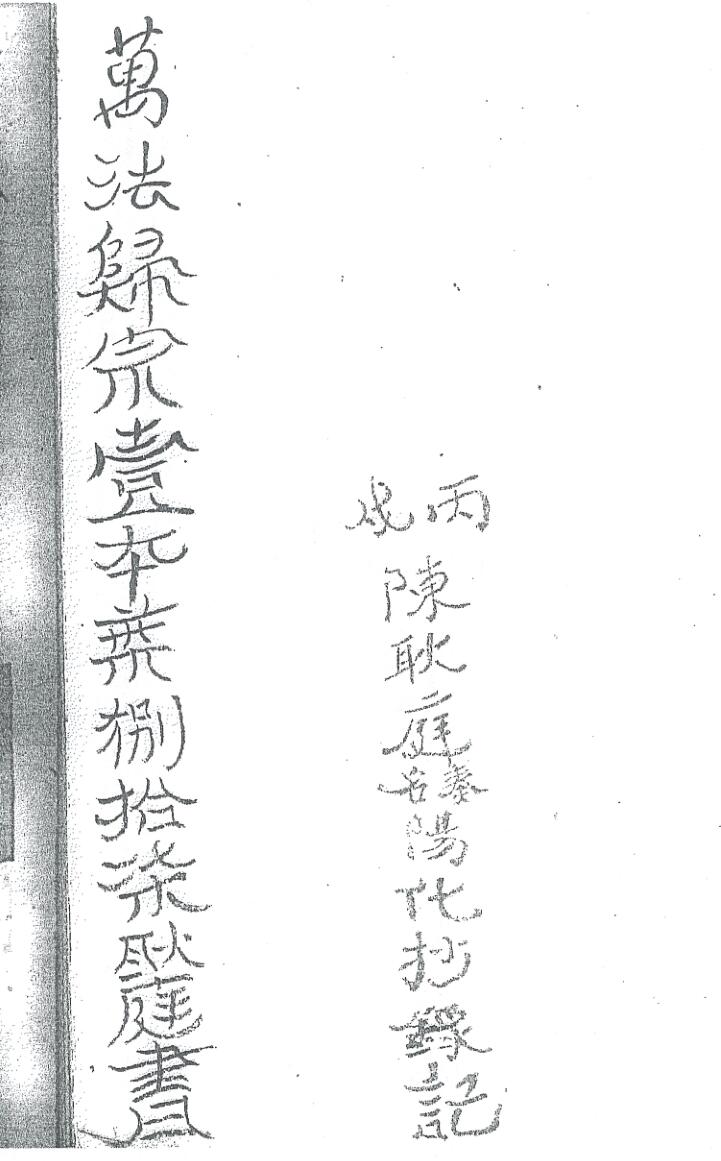 丙戌
陳耿庭名奏陽代抄錄記
萬法歸宗壹本葉捌拾柒耿庭書